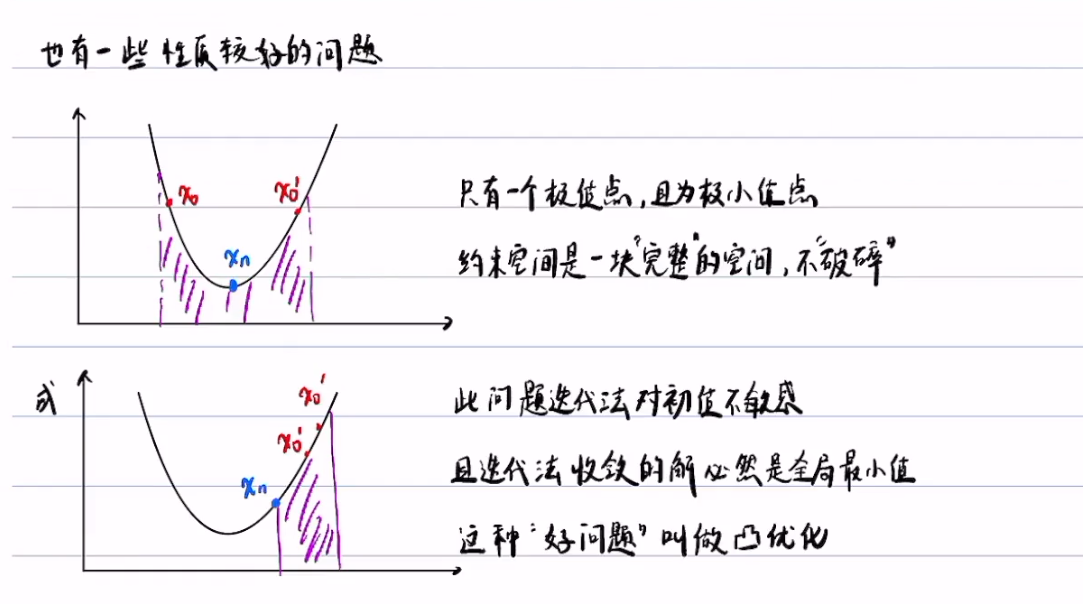 也有一些性质较好的问题
x₀ x₀'
xₙ
只有一个极值点,且为极小值点
约束空间是一块"完整"的空间,不"破碎"
或
x₀'
x₀'
xₙ
此问题迭代法对初值不敏感
且迭代法收敛的解必然是全局最小值
这种"好问题"叫做凸优化